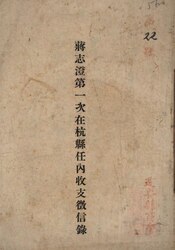 蔣志澄第一次在杭縣任內收支徵信錄
22